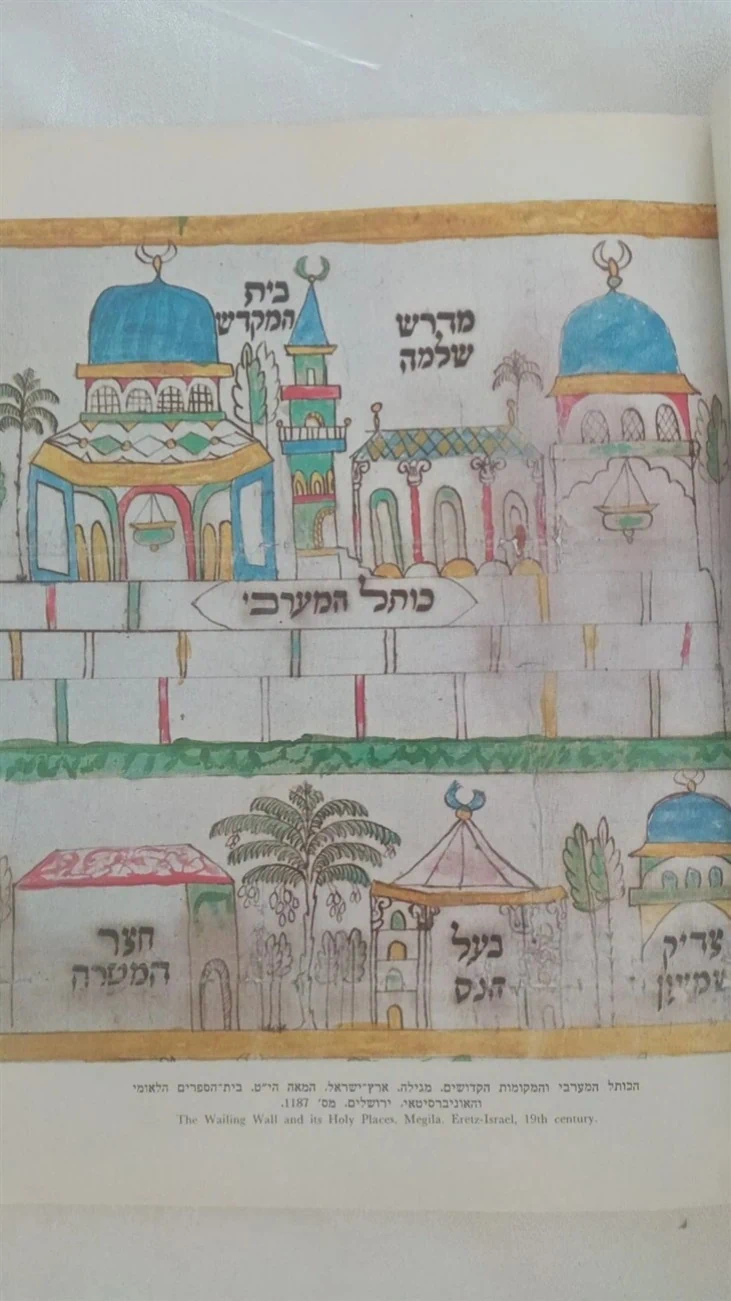 בית
המקדש
מדרש
שלמה
כותל המערבי
חצר
המטרה
בעל
הנס
צדיק
שמעון
הכותל המערבי והמקומות הקדושים. מגילה. ארץ־ישראל. המאה הי״ט. בית־הספרים הלאומי
והאוניברסיטאי. ירושלים. מס׳ 1187.
The Wailing Wall and its Holy Places. Megila. Eretz-Israel, 19th century.